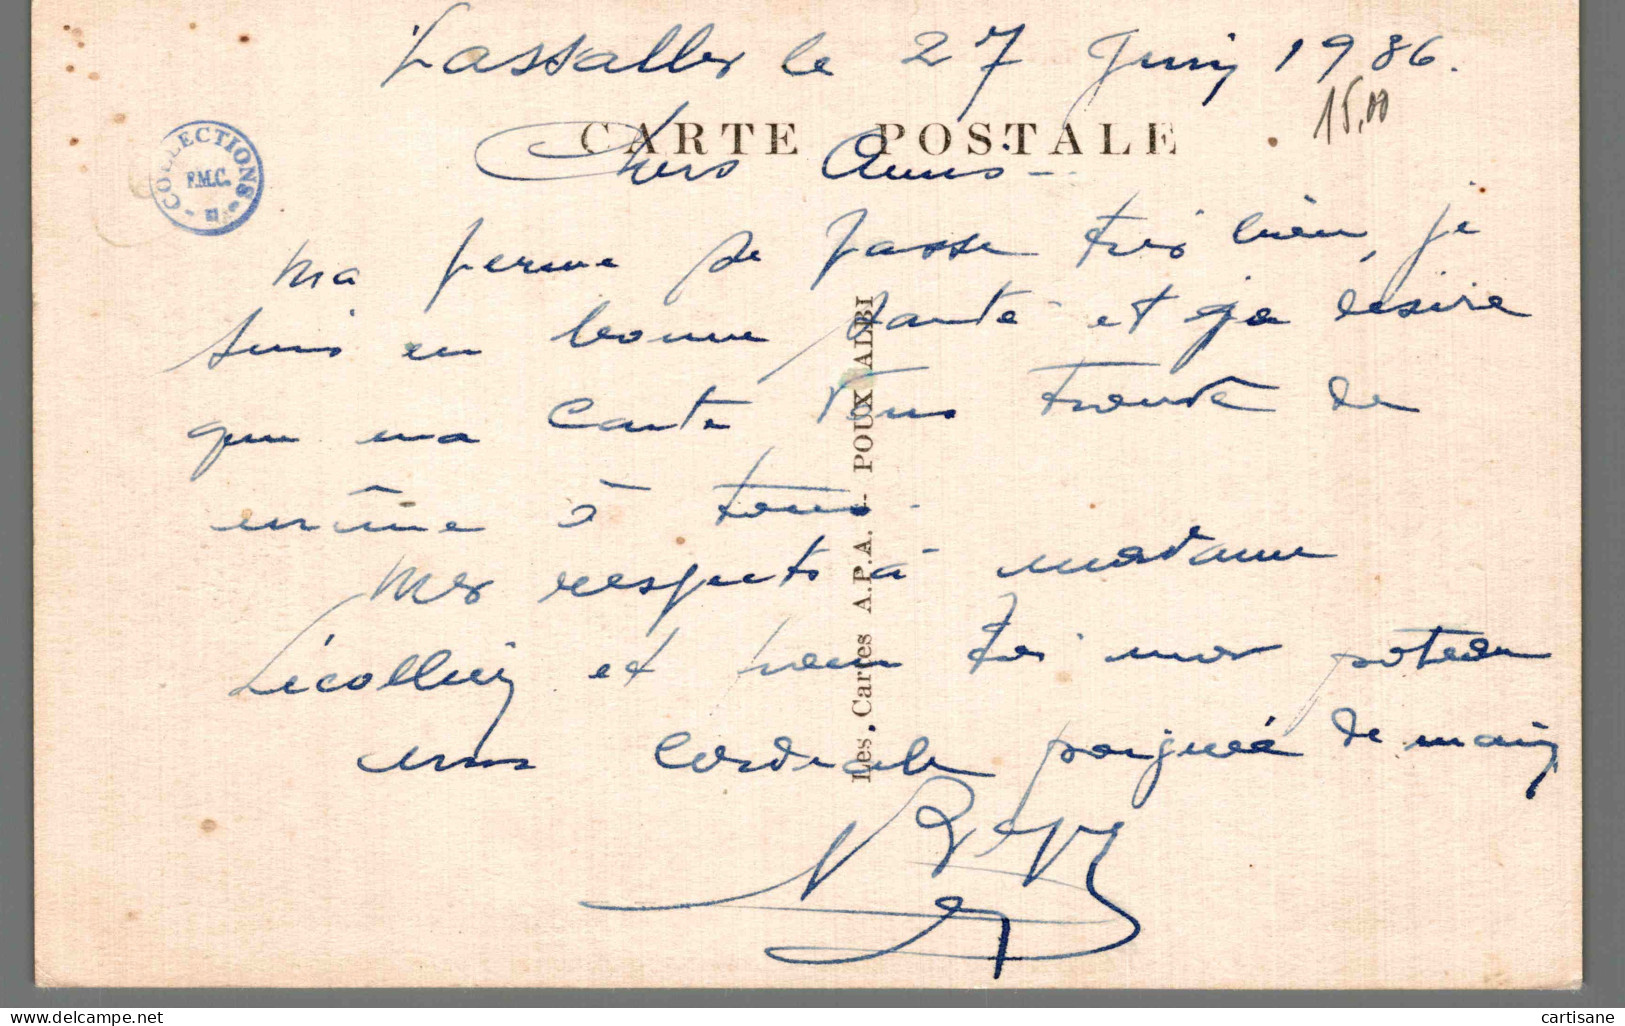 le 27 Juin 1936.
15,00
CARTE POSTALE
COLLECTIONS F.M.C.
Chers Amis
Ma se passe très bien, je
suis en bonne santé et je désire
que ma carte vous trouve de
même à tous.
Mes respects à madame
Lécollier et pour toi mon poteau
une cordiale poignée de main
Les Cartes A.P.A. - POUX ALBI
delcampe.net
cartisane